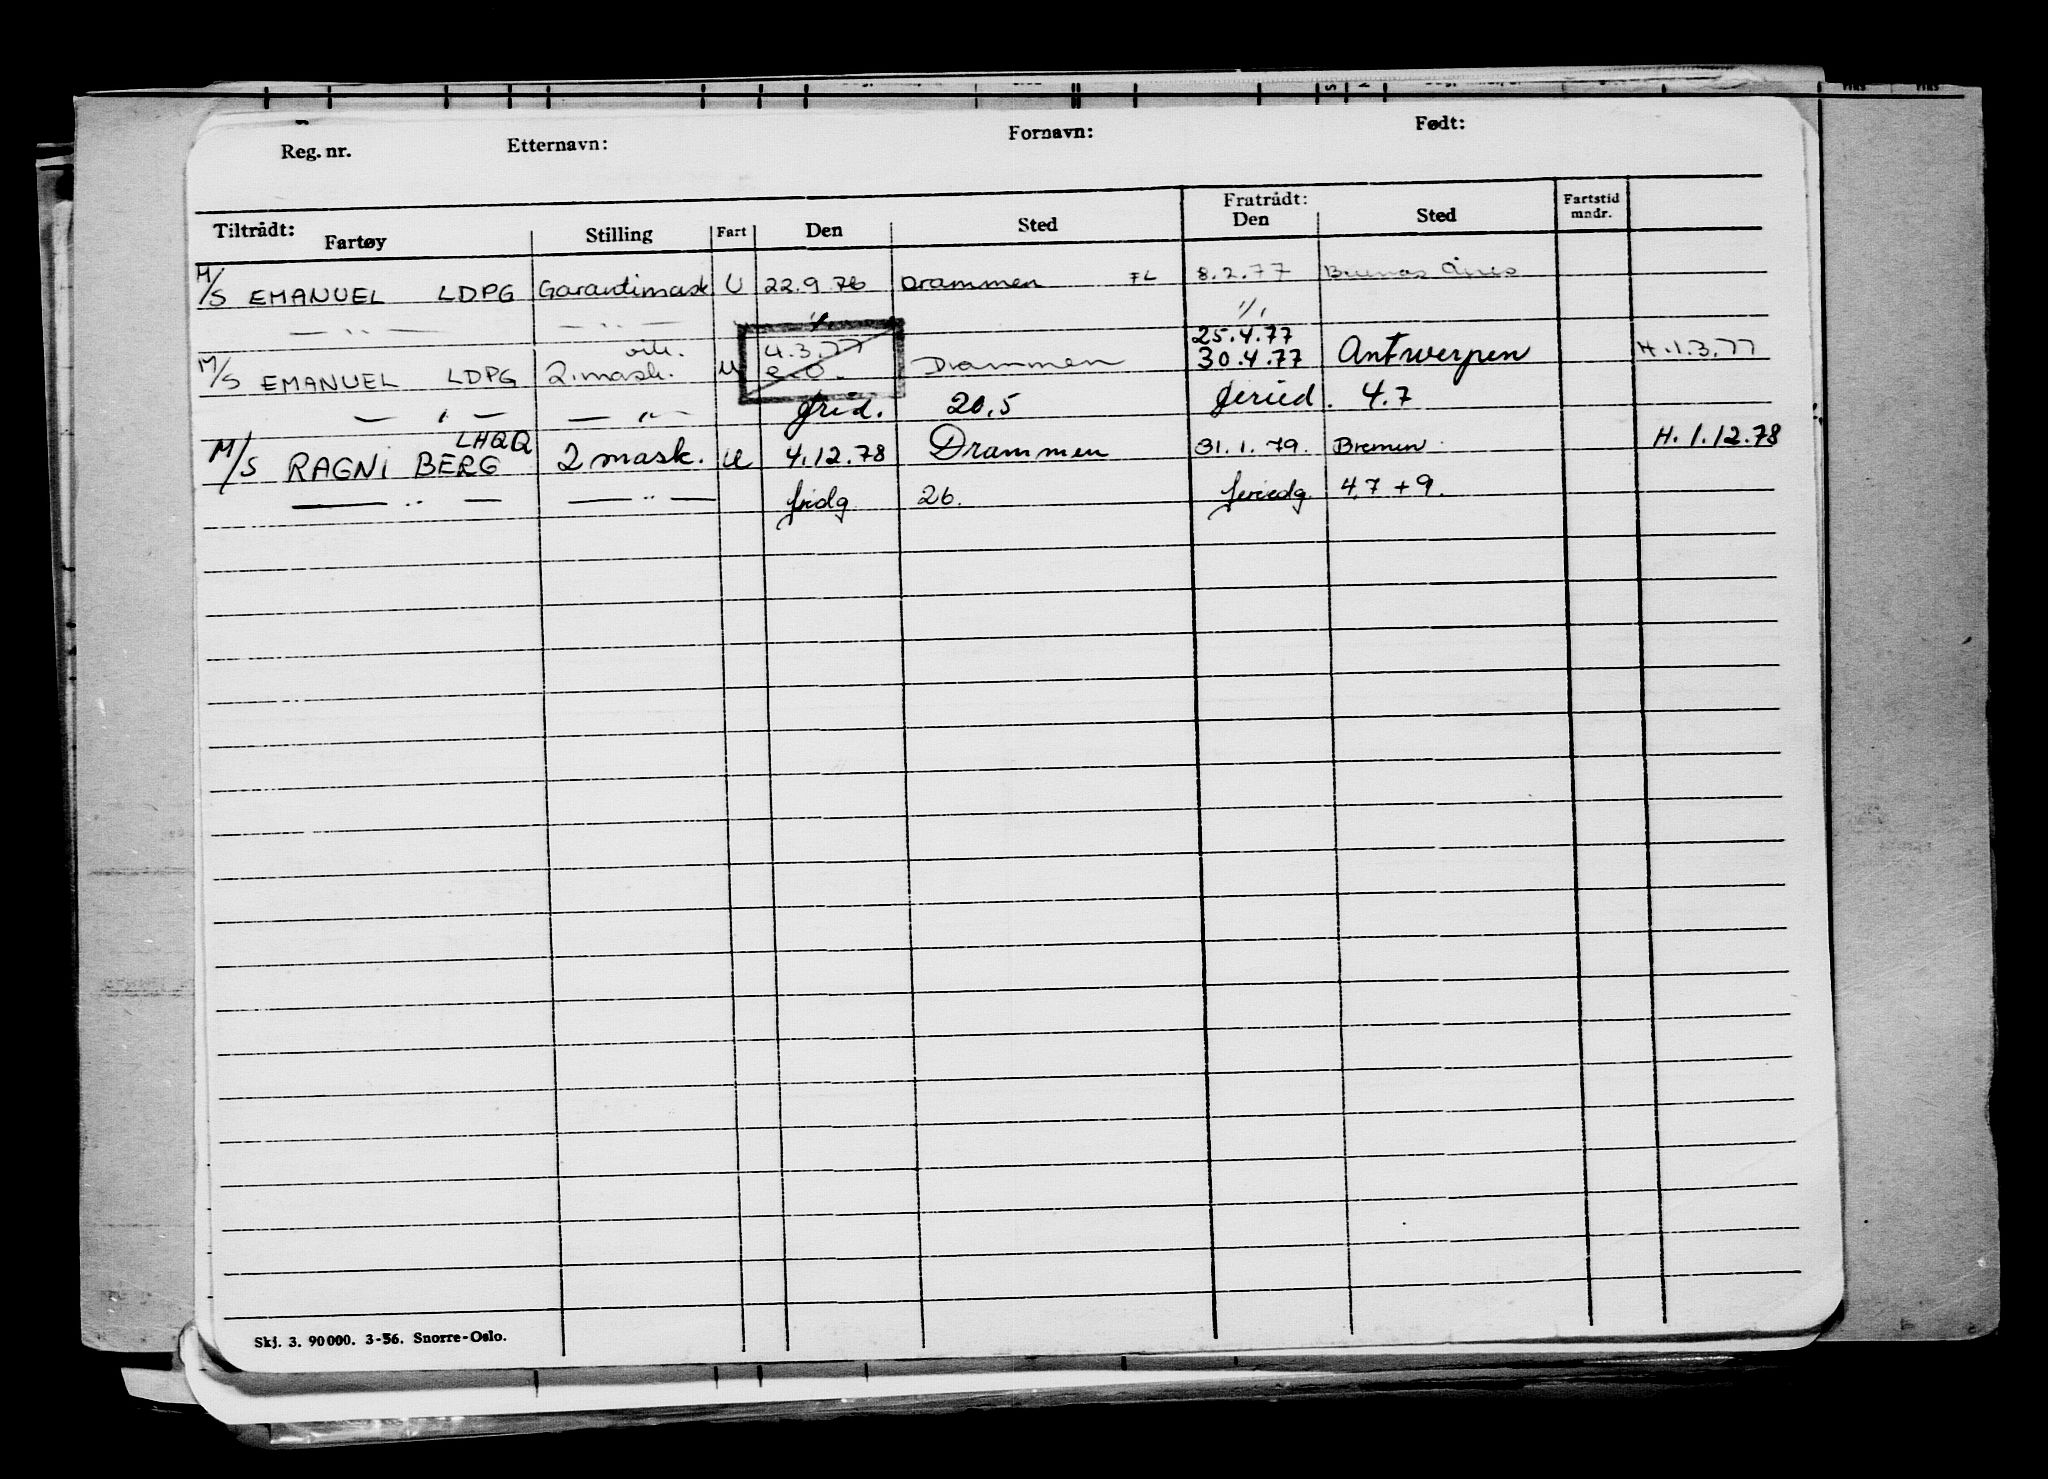 Reg. nr. Etternavn: Fornavn: Født:
Tiltrådt: Fratrådt:
Fartøy Stilling Fart Den Sted Den Sted Fartstid mndr.
M/S EMANUEL LDPG Garantimask U 22.9.76 Drammen FL 8.2.77 Buenos Aires
— " — — " — 1/1
25.4.77
M/S EMANUEL LDPG vik. 2.mask. U 4.3.77 e.o. Drammen 30.4.77 Antwerpen H.1.3.77
— " — — " — frid. 20,5 feried. 4.7
M/S RAGNI BERG LHQQ 2 mask. U 4.12.78 Drammen 31.1.79. Bremen H.1.12.78
— " — — " — fridg. 26. feriedg. 4,7 + 9.
Skj. 3. 90 000. 3-56. Snorre-Oslo.